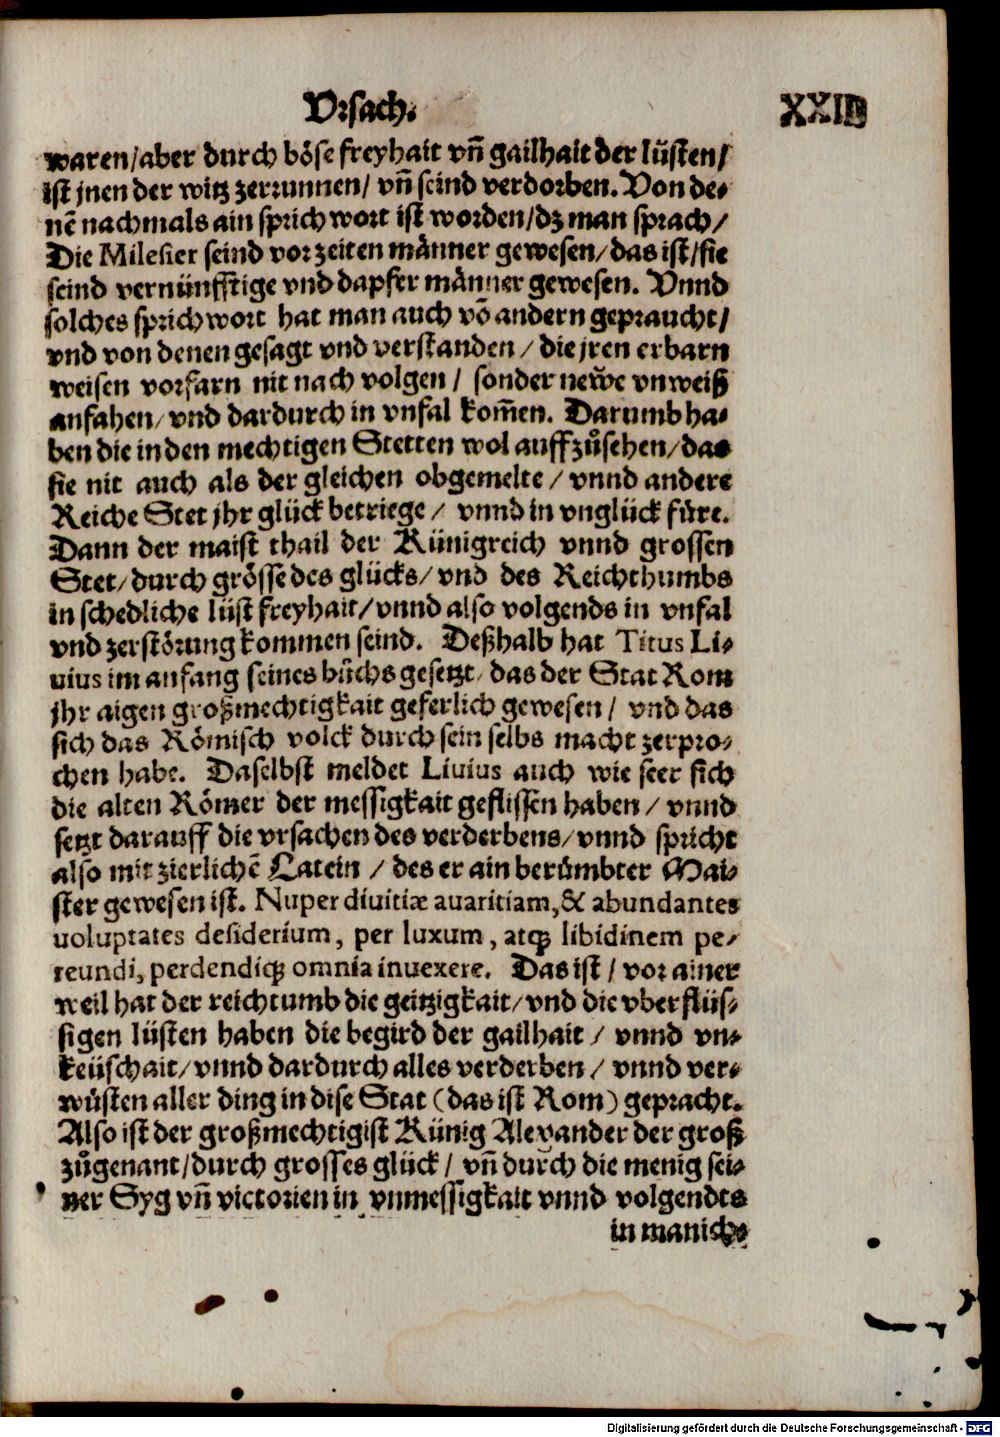 Vrsach.
XXIII
waren/aber durch böse freyhait vn̄ gailhait der lüsten/
ist jnen der witz zerrunnen/ vn̄ seind verdorben. Von de-
nē nachmals ain sprichwort ist worden/dz man sprach/
Die Milesier seind vorzeiten männer gewesen/das ist/sie
seind vernünfftige vnd dapfer männer gewesen. Vnnd
solches sprichwort hat man auch vō andern gepraucht/
vnd von denen gesagt vnd verstanden/die jren erbarn
weisen vorfarn nit nach volgen/ sonder newe vnweiß
anfahen/vnd dardurch in vnfal kom̄en. Darumb ha-
ben die in den mechtigen Stetten wol auffzůsehen/das
sie nit auch als der gleichen obgemelte/vnnd andere
Reiche Stet jhr glück betriege/ vnnd in vnglück füre.
Dann der maist thail der Künigreich vnnd grossen
Stet/durch grösse des glücks/vnd des Reichthumbs
in schedliche lüst freyhait/vnnd also volgends in vnfal
vnd zerstörung kommen seind. Deßhalb hat Titus Li-
uius im anfang seines bůchs gesetzt/das der Stat Rom
jhr aigen großmechtigkait geferlich gewesen/ vnd das
sich das Römisch volck durch sein selbs macht zerpro-
chen habe. Daselbst meldet Liuius auch wie seer sich
die alten Römer der messigkait geflissen haben/vnnd
setzt darauff die vrsachen des verderbens/vnnd spricht
also mit zierlichē Latein/des er ain berümbter Mai-
ster gewesen ist. Nuper diuitiæ auaritiam,& abundantes
uoluptates desiderium, per luxum, atq; libidinem pe-
reundi, perdendiq; omnia inuexere. Das ist/vor ainer
weil hat der reichtumb die geitzigkait/vnd die vberflüs-
sigen lüsten haben die begird der gailhait/vnnd vn-
keüschait/vnnd dardurch alles verderben/vnnd ver-
wüsten aller ding in dise Stat (das ist Rom) gepracht.
Also ist der großmechtigist Künig Alexander der groß
zůgenant/durch grosses glück/ vn̄ durch die menig sei-
ner Syg vn̄ victorien in vnmessigkait vnnd volgendts
in maniche
Digitalisierung gefördert durch die Deutsche Forschungsgemeinschaft - DFG